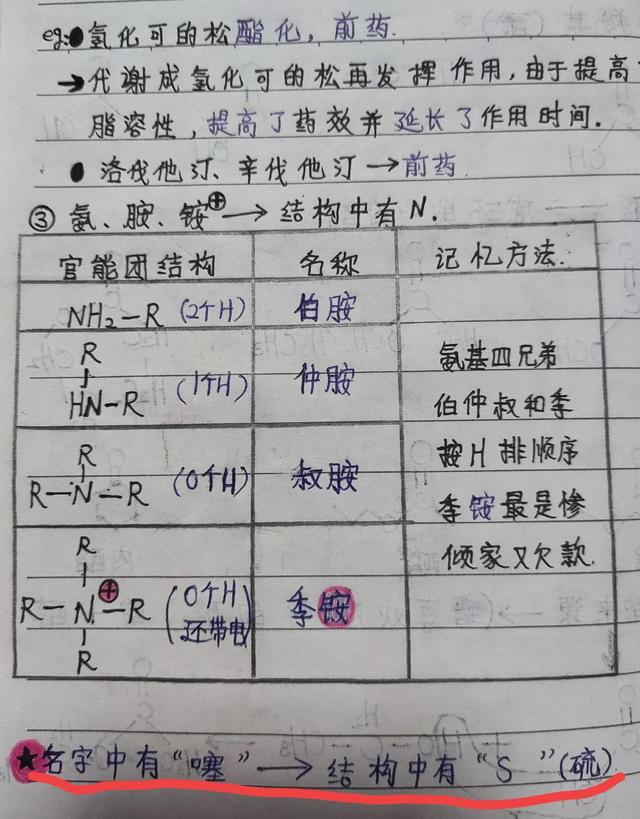 eg:●氢化可的松酯化，前药.
→代谢成氢化可的松再发挥作用,由于提高了
脂溶性，提高了药效并延长了作用时间.
● 洛伐他汀、辛伐他汀→前药.
③ 氨、胺、铵⊕→结构中有N.
官能团结构 名称 记忆方法.
NH₂-R (2个H) 伯胺
R
HN-R (1个H) 仲胺
氨基四兄弟
伯仲叔和季
R
R-N-R (0个H) 叔胺
按H排顺序
季铵最是惨
倾家又欠款.
R
R-N⊕-R (0个H
还带电)
R
季铵
★名字中有“噻”→结构中有“S”(硫)